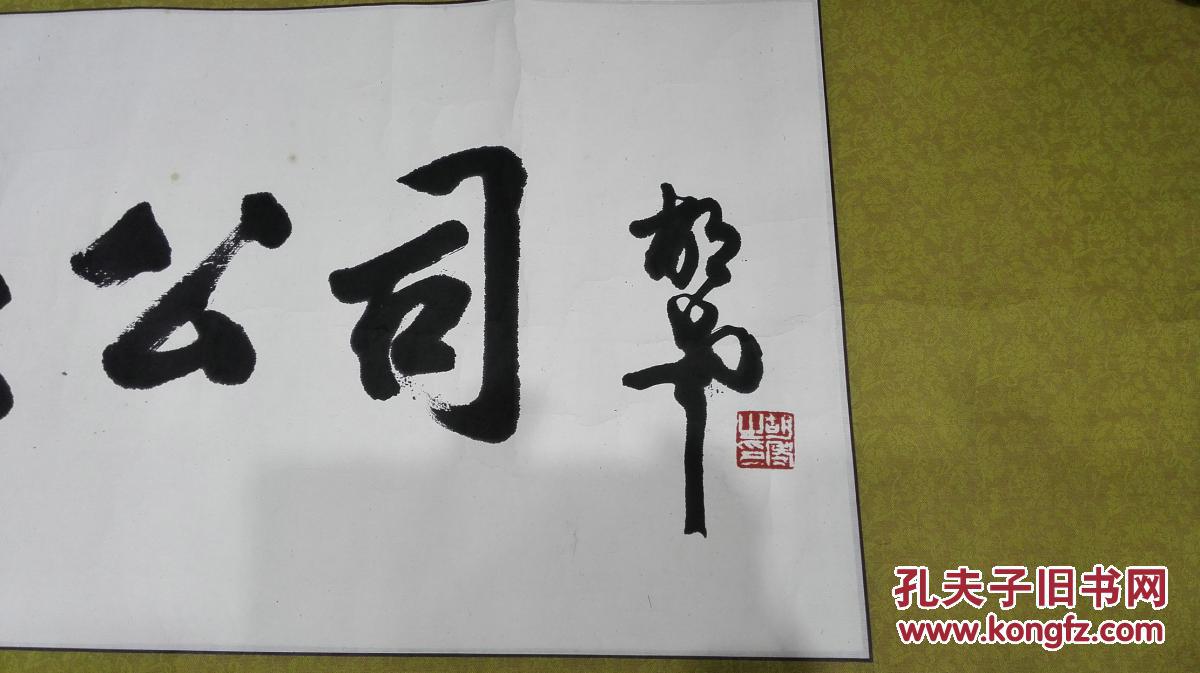 公司
胡
胡 之印
孔夫子旧书网
www.kongfz.com